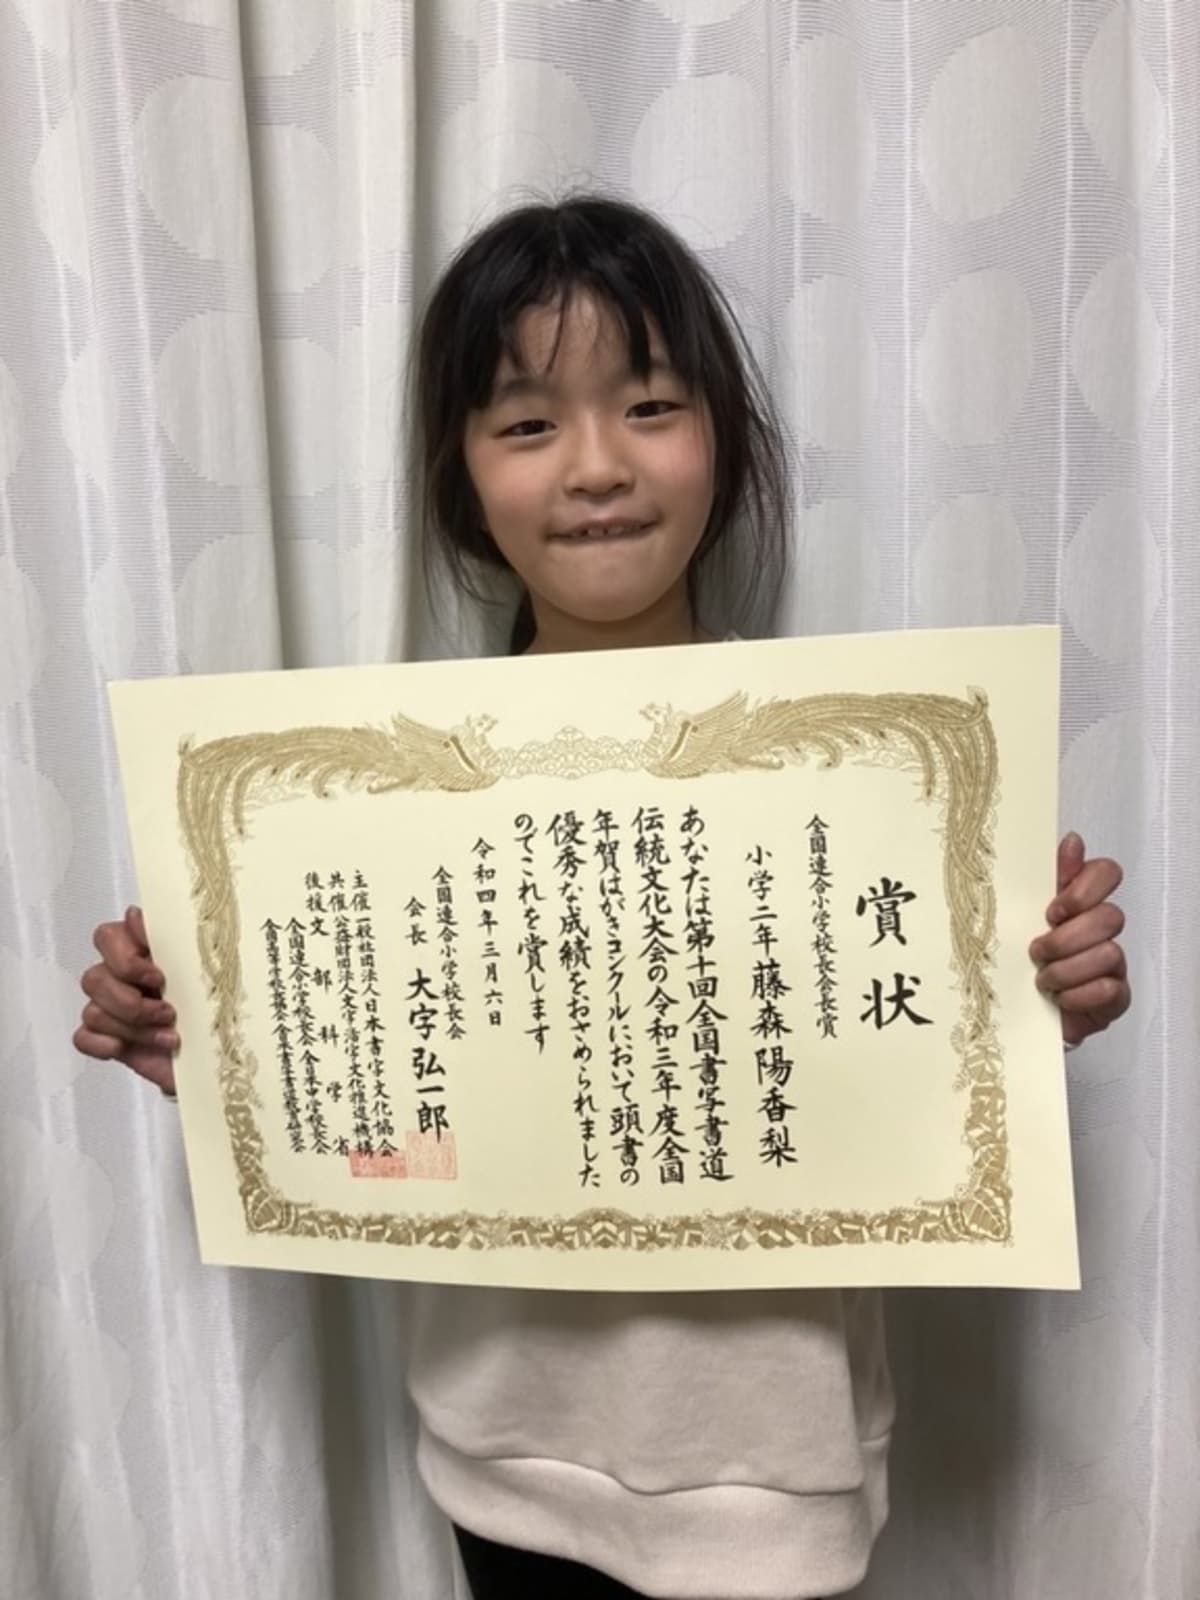 賞状
全国連合小学校長会会長賞
小学二年 藤森陽香梨
あなたは第十回全国書写書道
伝統文化大会の令和三年度全国
年賀はがきコンクールにおいて頭書の
優秀な成績をおさめられました
のでこれを賞します
令和四年三月六日
全国連合小学校長会
会長 大字弘一郎
主催 一般社団法人日本書字文化協会
共催 公益財団法人文字・活字文化推進機構
後援 文部科学省
全国連合小学校長会 全日本中学校長会